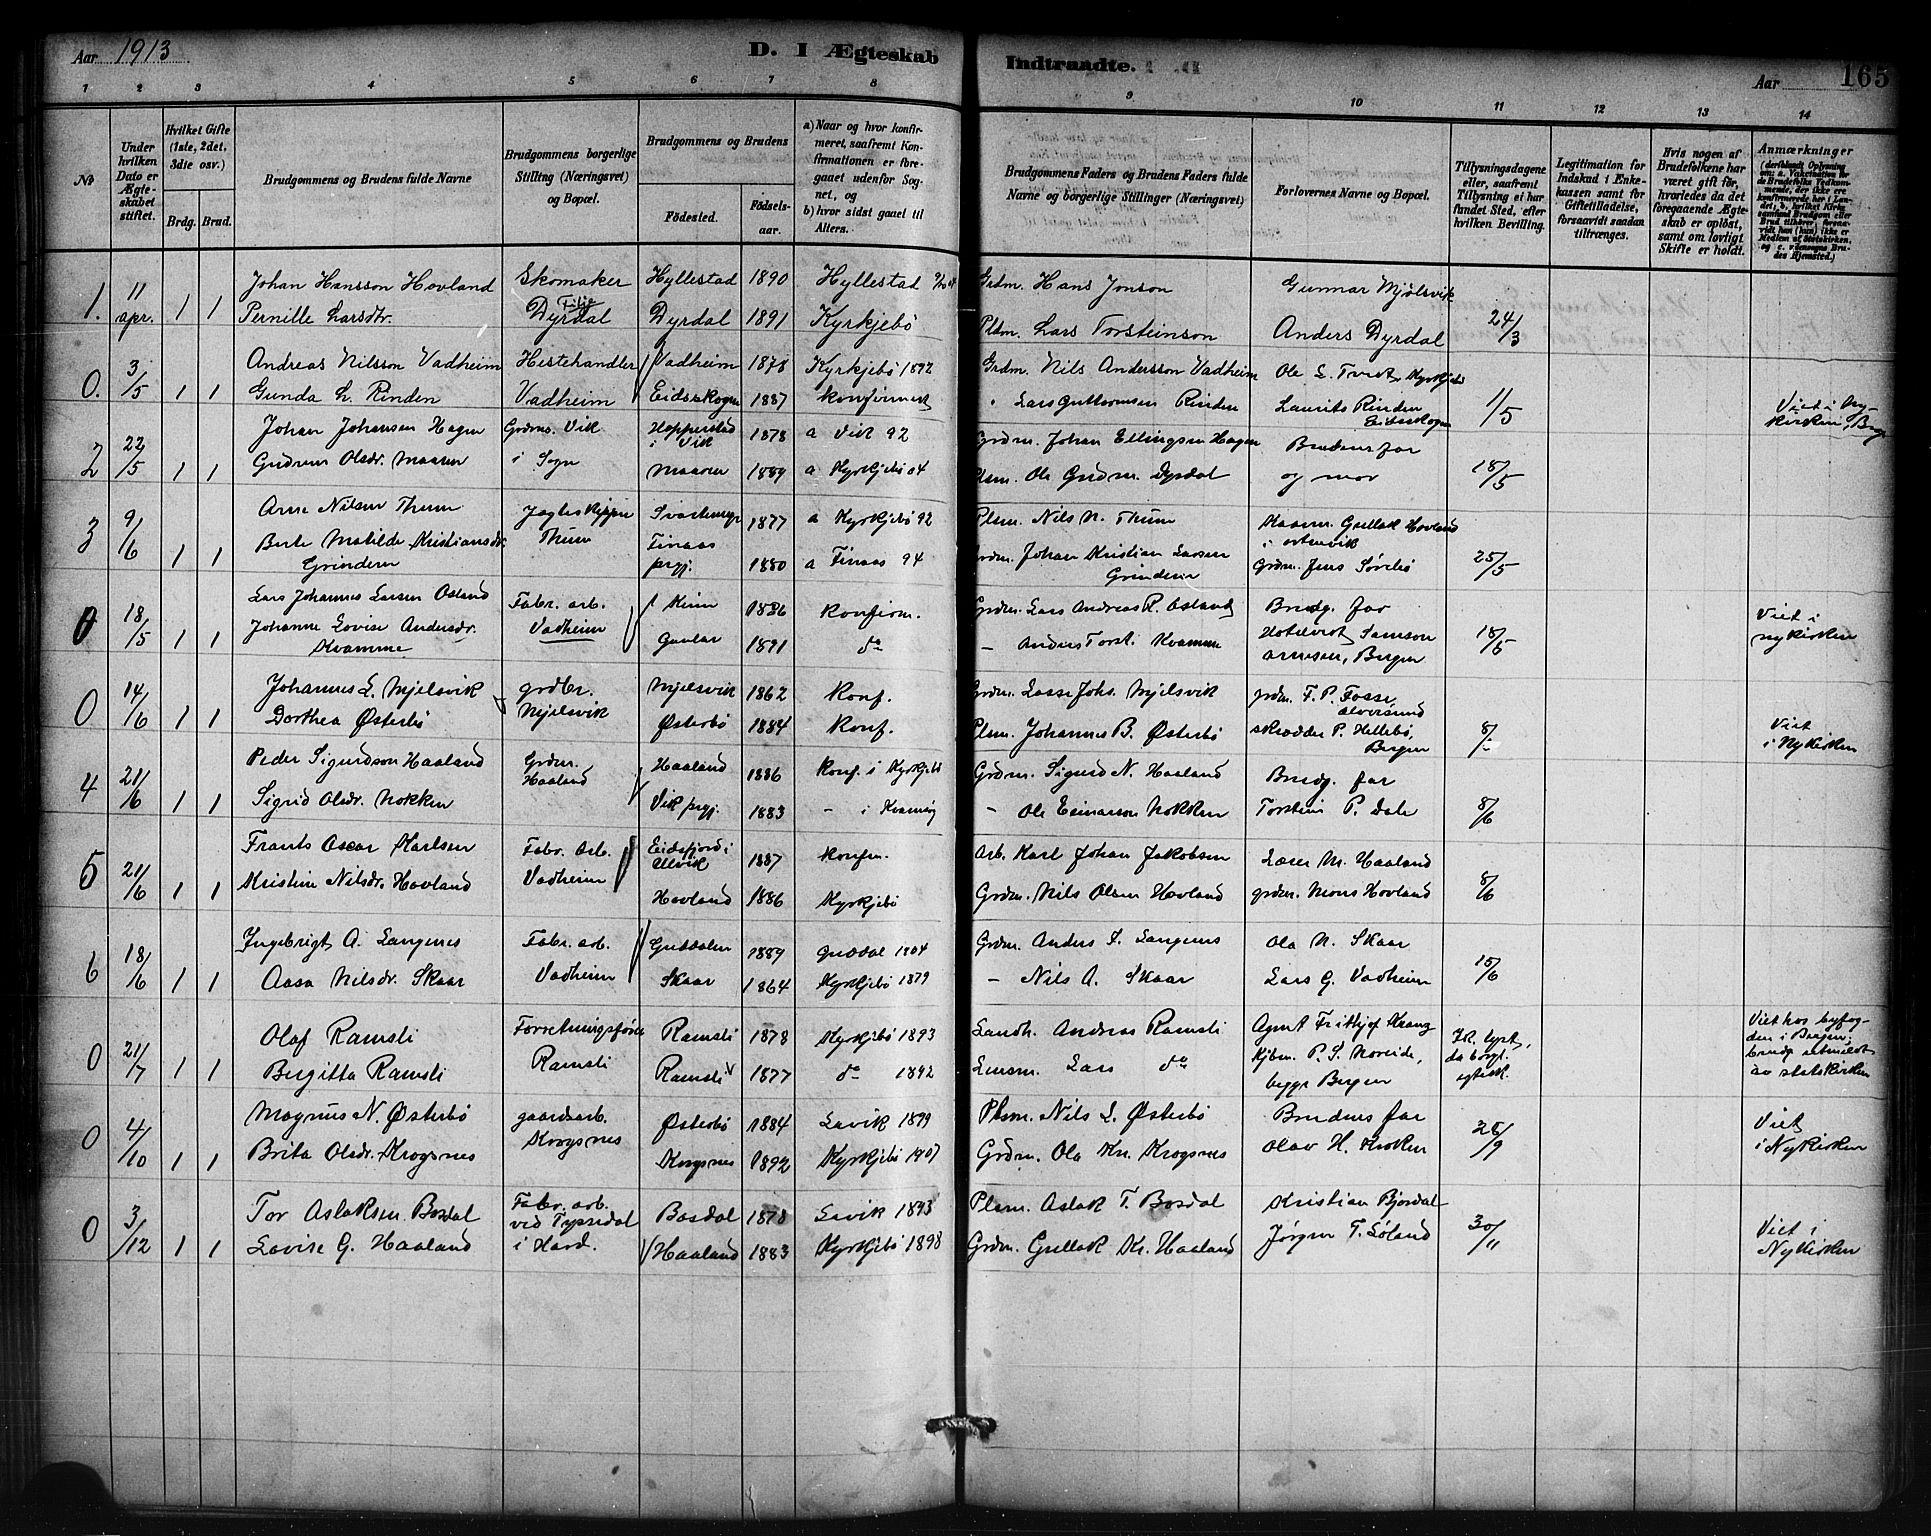 Aar 1913
D. I Ægteskab
Indtraadte.
Aar
165
1 2 3 4 5 6 7 8 9 10 11 12 13 14
No
Under hvilken Dato er Ægteskabet stiftet.
Hvilket Gifte (1ste, 2det, 3die osv.)
Brdg. Brud.
Brudgommens og Brudens fulde Navne
Brudgommens borgerlige Stilling (Næringsvei) og Bopæl.
Brudgommens og Brudens
Födested.
Födselsaar.
a) Naar og hvor konfirmeret, saafremt Konfirmationen er foregaaet udenfor Sognet, og
b) hvor sidst gaaet til Alters.
Brudgommens Faders og Brudens Faders fulde Navne og borgerlige Stillinger (Næringsvei)
Forlovernes Navne og Bopæl.
Tillysningsdagene eller, saafremt Tillysning ei har fundet Sted, efter hvilken Bevilling.
Legitimation for Indskud i Enkekassen samt for Giftetilladelse, forsaavidt saadan tiltrænges.
Hvis nogen af Brudefolkene har været gift för, hvorledes da det foregaaende Ægteskab er oplöst, samt om lovligt Skifte er holdt.
Anmærkninger
1. 11 apr. 1 1 Johan Hansson Hovland Skomaker Hyllestad 1890 Hyllestad Grdm. Hans Jonson Gunnar Mjölsvik 24/3
Pernille Larsdtr. Dyrdal Dyrdal 1891 Kyrkjebö Plsm. Lars Torsteinson Anders Dyrdal
0. 3/5 1 1 Andreas Nilsson Vadheim Hestehandler Vadheim 1878 Kyrkjebö 1892 Grdm. Nils Andersson Vadheim Ole L. Tveit, Kyrkjebö 1/5
Gunda L. Rinden Vadheim Eidskogen 1887 konfirmert Lars Guttormsen Rinden Laurits Rinden Eidskogen Viet i Nykirken, Berg.
2 22/5 1 1 Johan Johansen Hagen Grdm. Vik Hopperstad i Vik 1878 a Vik 92 Grdm. Johan Ellingsen Hagen Brudens far 18/5
Gudrun Olsdr. Maaren i Sogn Maaren 1889 a Kyrkjebö 04 Plsm. Ole Gudm. Dyrdal og mor
3 9/6 1 1 Arne Nilsen Thune Jagteskipper Svartemyr 1877 a Kyrkjebö 92 Plsm. Nils N. Thune Gullak Hovland i Ortnevik 25/5
Berte Matilde Kristiansdr. Grinden Thune Finaas prgj. 1880 a Finaas 94 Grdm. Johan Kristian Larsen Grinden Grdm. Jens Sörebö
0 18/5 1 1 Lars Johannes Larsen Osland Fabr. arb. 1886 konfirm. Grdm. Lars Andreas R. Osland Brudg. far 18/5
Johanne Lovise Andersdr. Kvamme Vadheim Gaular 1891 do — Anders Torst. Kvamme Samson Arnesen, Bergen Viet i nykirken
0 14/6 1 1 Johannes L. Mjelsvik grdbr. Mjelsvik 1862 konf. Grdm. Lasse Johs. Mjelsvik grdm. F. P. Fosse, Alversund
Dorthea Østerbö Mjelsvik Østerbö 1884 konf. Plsm. Johannes B. Østerbö skrædder P. Hellebö, Bergen Viet i Nykirken
4 21/6 1 1 Peder Sigurdson Haaland Grdm. Haaland 1886 konf. i Kyrkjebö Grdm. Sigurd N. Haaland Brudg. far 8/6
Sigrid Olsdr. Nokken Haaland Vik prgj. 1883 — Ole Einarson Nokken Torstein P. Dale
5 21/6 1 1 Frants Oscar Karlsen Fabr. Arb. Eidsfjord i Ulvik 1887 konfm. Arb. Karl Johan Jakobsen Lærer M. Haaland 8/6
Kristine Nilsdr. Hovland Vadheim Hovland 1886 Kyrkjebö Grdm. Nils Olsen Hovland grdm. Mons Hovland
6 18/6 1 1 Ingebrigt A. Langenes Fabr. arb. Guddalen 1889 Guddal 1904 Grdm. Anders I. Langenes Ola N. Skaar 15/6
Aasa Nilsdr. Skaar Vadheim Skaar 1864 Kyrkjebö 1879 — Nils A. Skaar Lars G. Vadheim
0 21/7 1 1 Olaf Ramsli Forretningsförer Ramsli 1878 Kyrkjebö 1893 Landh. Andreas Ramsli Agent Fritthjof Krang Ik. lyst, da borgl. egtesk.
Birgitta Ramsli Ramsli Ramsli 1877 do 1892 Lensm. Lars do Kjbm. P. S. Noreide, begge Bergen Viet hos byfogden i Bergen; brudp. utmeldt av statskirken
0 4/10 1 1 Magnus N. Østerbö gaardsarb. Østerbö 1884 Lavik 1899 Plsm. Nils L. Østerbö Brudens far 28/9
Brita Olsdr. Krogsnes Krogsnes Krogsnes 1892 Kyrkjebö 1907 Grdm. Ole Kr. Krogsnes Olav H. Kroken Viet i Nykirken
0 3/12 1 1 Tor Aslaksen Bosdal Fabr. arb. ved Tyssedal Bosdal 1878 Lavik 1893 Plsm. Aslak T. Bosdal Kristian Bjordal 30/11
Lovise G. Haaland i Hard. Haaland 1883 Kyrkjebö 1898 Grdm. Gullak Kr. Haaland Jørgen T. Søland Viet i Nykirken